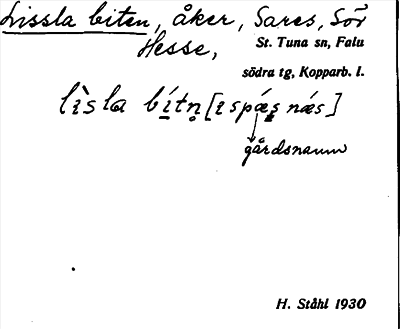 Lissla biten, åker, Sares, Sör
Hesse,
St. Tuna sn, Falu
södra tg, Kopparb. l.
lìsla bítn̥ [i spǽs nǽs]
gårdsnamn
H. Ståhl 1930